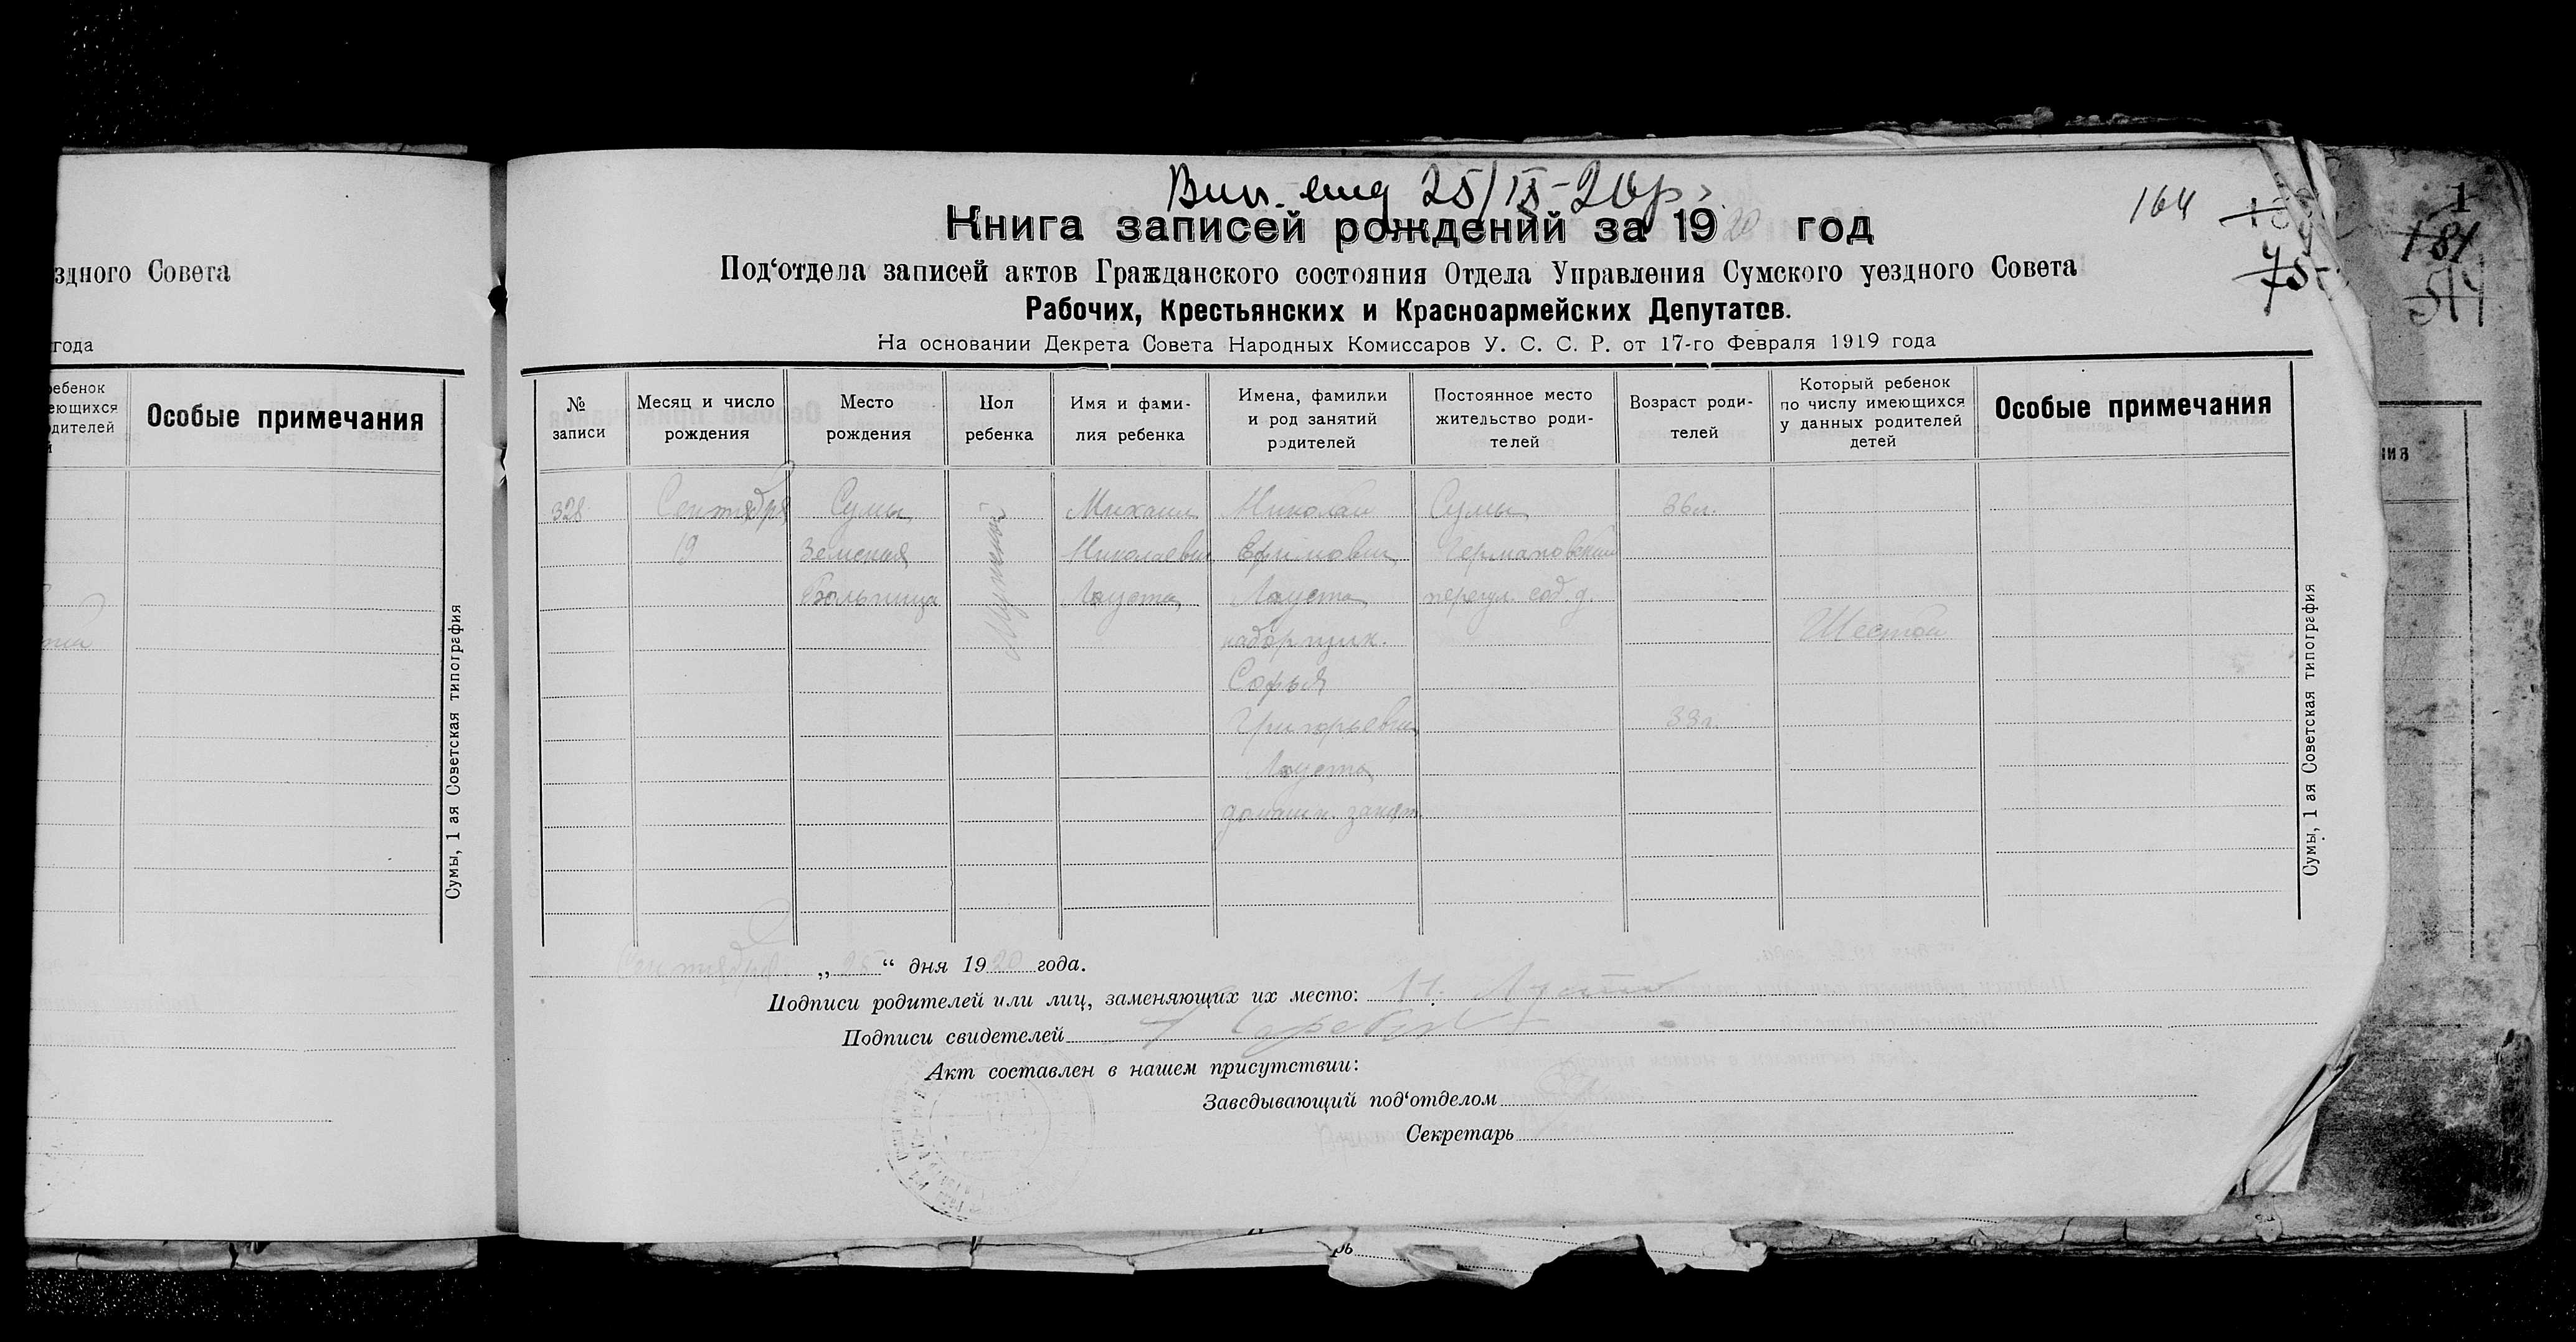 Вип. вид 25/IX-20р.
164
75
1
181
514
Книга записей рождений за 1920 год
здного Совета
Под‘отдела записей актов Гражданского состояния Отдела Управления Сумского уездного Совета
Рабочих, Крестьянских и Красноармейских Депутатов.
года
На основании Декрета Совета Народных Комиссаров У. С. С. Р. от 17-го Февраля 1919 года
ребенок
еющихся
одителей
й
Особые примечания
№
записи
Месяц и число
рождения
Место
рождения
Пол
ребенка
Имя и фами-
лия ребенка
Имена, фамилии
и род занятий
родителей
Постоянное место
жительство роди-
телей
Возраст роди-
телей
Который ребенок
по числу имеющихся
у данных родителей
детей
Особые примечания
ния
328 Сентября Сумы Мужской Михаил Николай Сумы 36л.
19 Земская Николаевич Ефимович
Больница Лауста Лауста переул. соб. д.
наборщик. Шестой
Софья
Григорьевна 33г.
Лауста
домашн. занят.
Сумы, 1 ая Советская типография
Сумы, 1 ая Советская типография
Сентября „25“ дня 1920 года.
Подписи родителей или лиц, заменяющих их место: Н. Лауста
Подписи свидетелей
Акт составлен в нашем присутствии:
Заведывающий под‘отделом
Секретарь